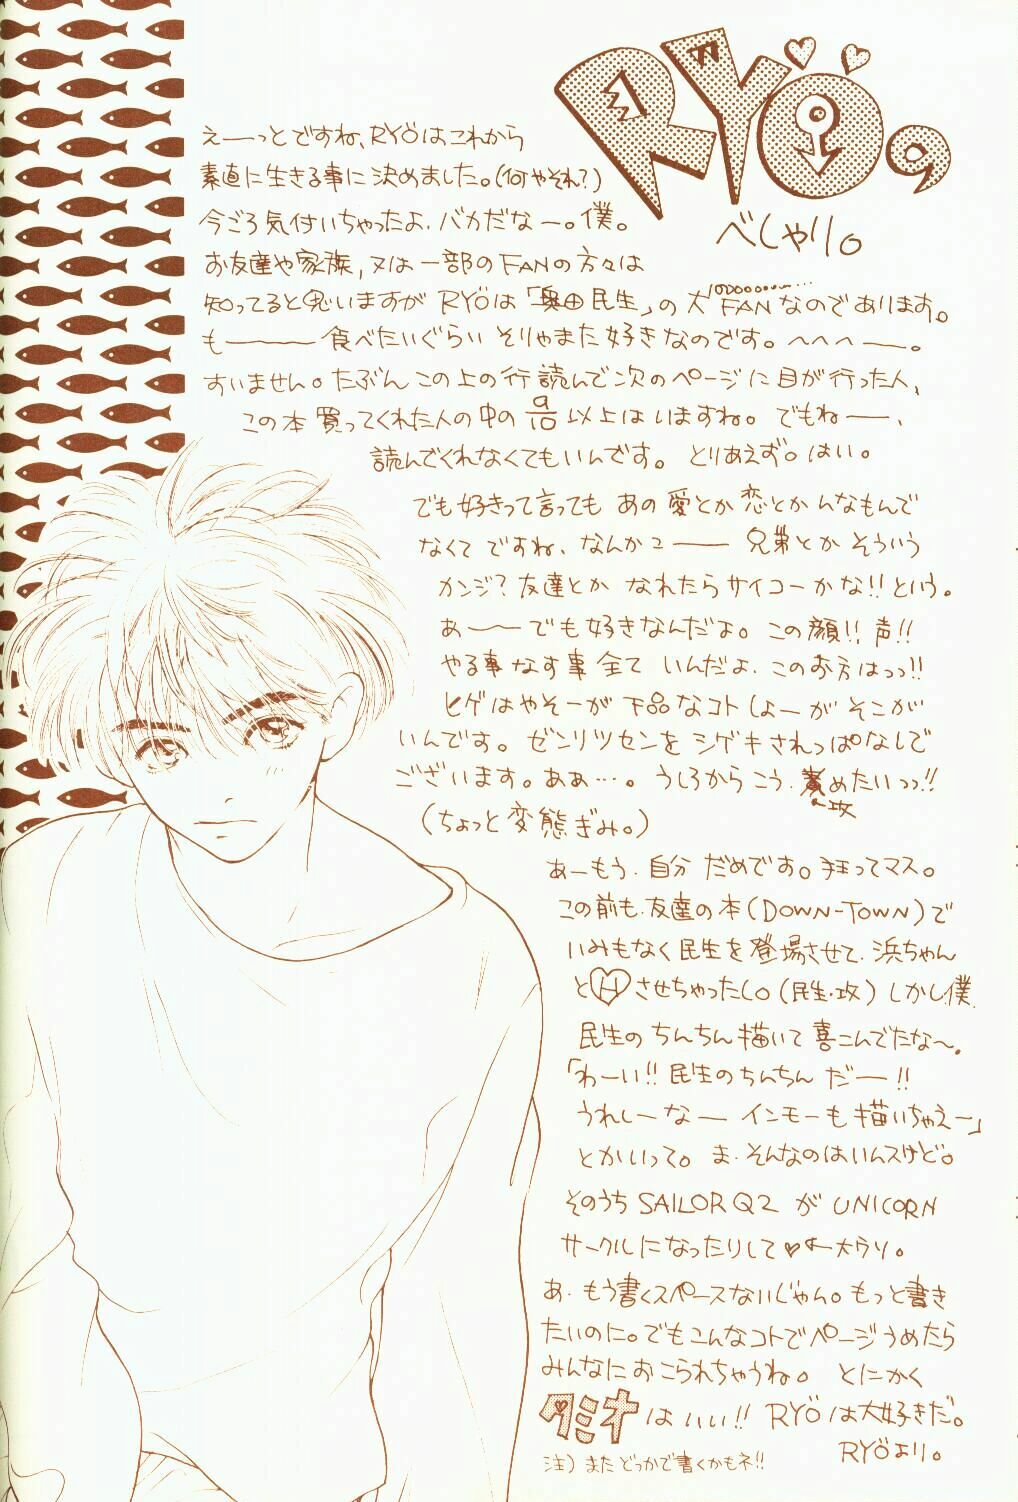 RYÖの
べしゃり。
えーっとですね、RYÖはこれから
素直に生きる事に決めました。(何やそれ?)
今ごろ気付いちゃったよ、バカだなー。僕。
お友達や家族、又は一部のFANの方々は
知ってると思いますがRYÖは「奥田民生」の大FANなのであります。
もーーー食べたいぐらいそりゃまた好きなのです。へへへー。
すいません。たぶんこの上の行読んで次のページに目が行った人、
この本買ってくれた人の中の9/10以上はいますね。でもねー、
読んでくれなくてもいんです。とりあえず。はい。
でも好きって言ってもあの愛とか恋とかんなもんで
なくてですね、なんかこーー兄弟とかそういう
カンジ?友達とかなれたらサイコーかな!!という。
あーーでも好きなんだよ。この顔!!声!!
やる事なす事全ていんだよ、このお方はっっ!!
ヒゲはやそーが下品なコトしよーがそこが
いんです。ゼンリツセンをシゲキされっぱなしで
ございます。ああ…。うしろからこう、責めたいっっ!!
攻
(ちょっと変態ぎみ。)
あーもう、自分だめです。狂ってマス。
この前も、友達の本(DOWN-TOWN)で
いみもなく民生を登場させて、浜ちゃん
とHさせちゃったし。(民生・攻)しかし僕、
民生のちんちん描いて喜こんでたな〜。
「わーい!!民生のちんちんだー!!
うれしーなーインモーも描いちゃえー」
とかいって。ま、そんなのはいんスけど。
そのうちSAILOR Q2がUNICORN
サークルになったりして♥←大ウソ。
あ、もう書くスペースないじゃん。もっと書き
たいのに。でもこんなコトでページうめたら
みんなにおこられちゃうね。とにかく
タミオはいい!!RYÖは大好きだ。
RYÖより。
注)またどっかで書くかもネ!!